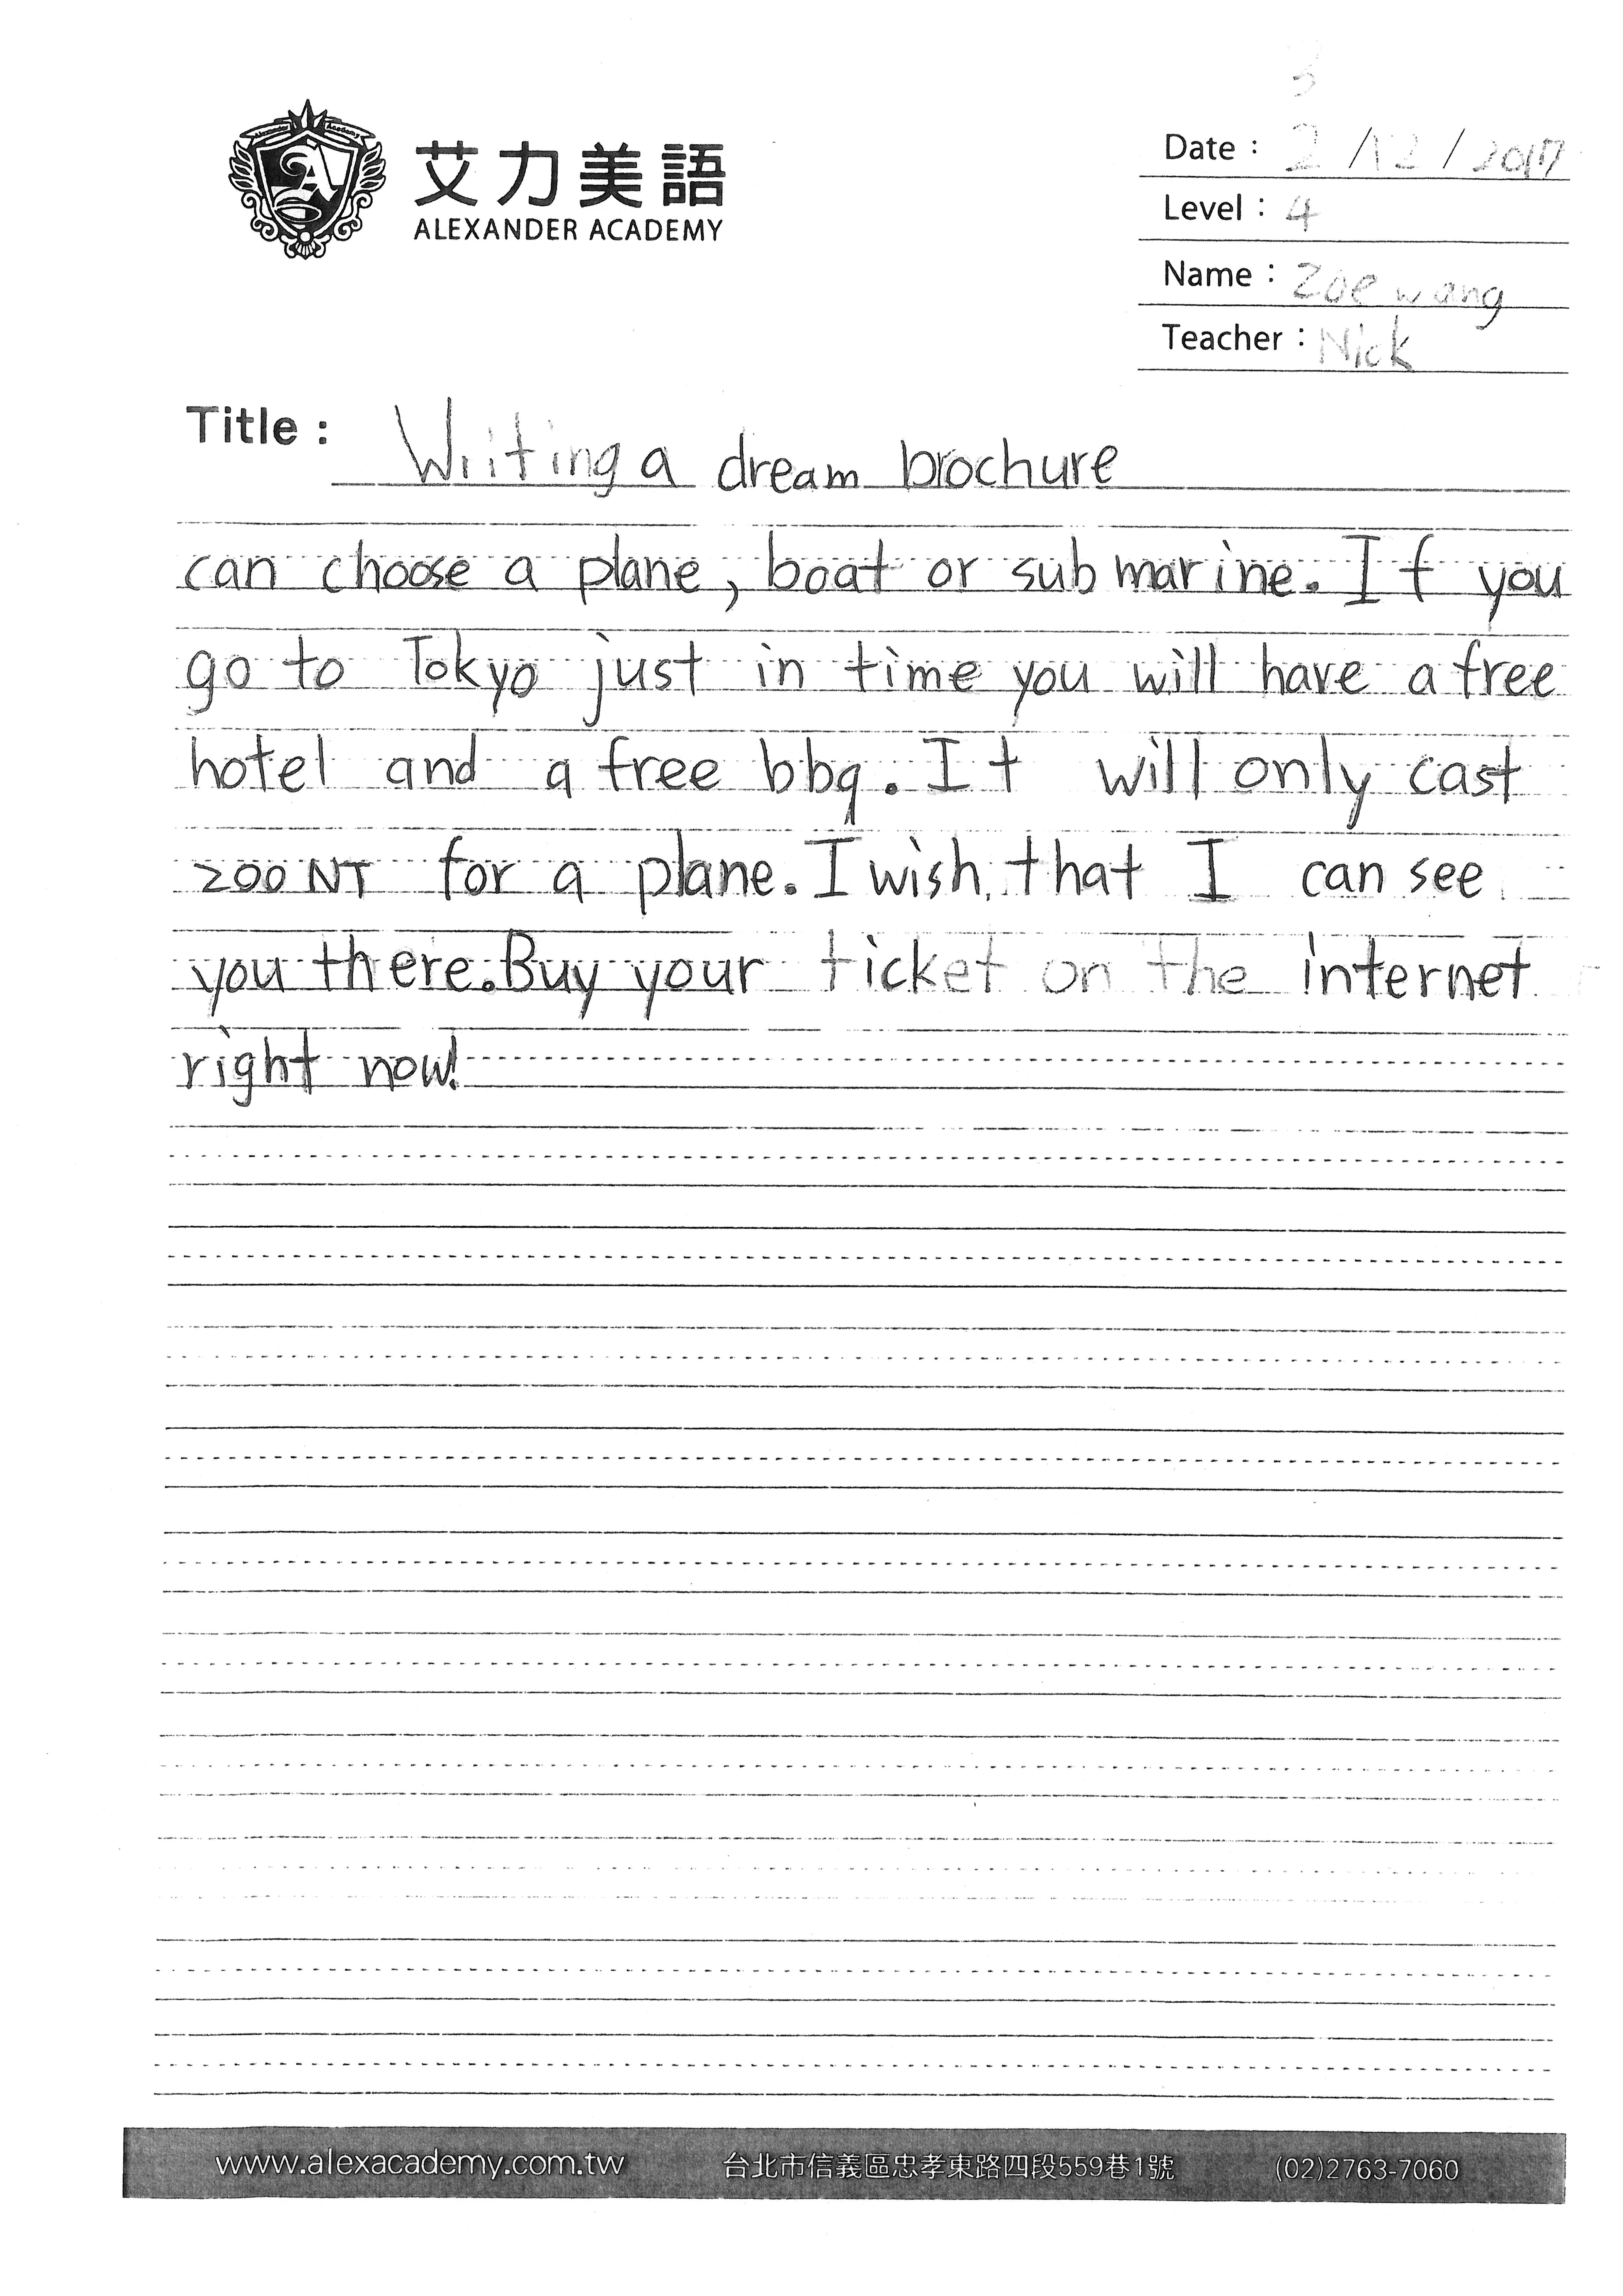 艾力美語
ALEXANDER ACADEMY
Date : 2 / 12 / 2017
Level : 4
Name : Zoe wang
Teacher : Nick
Title : Writing a dream brochure
can choose a plane, boat or submarine. If you
go to Tokyo just in time you will have a free
hotel and a free bbq. It will only cast
200 NT for a plane. I wish that I can see
you there. Buy your ticket on the internet
right now!
www.alexacademy.com.tw 台北市信義區忠孝東路四段559巷1號 (02)2763-7060